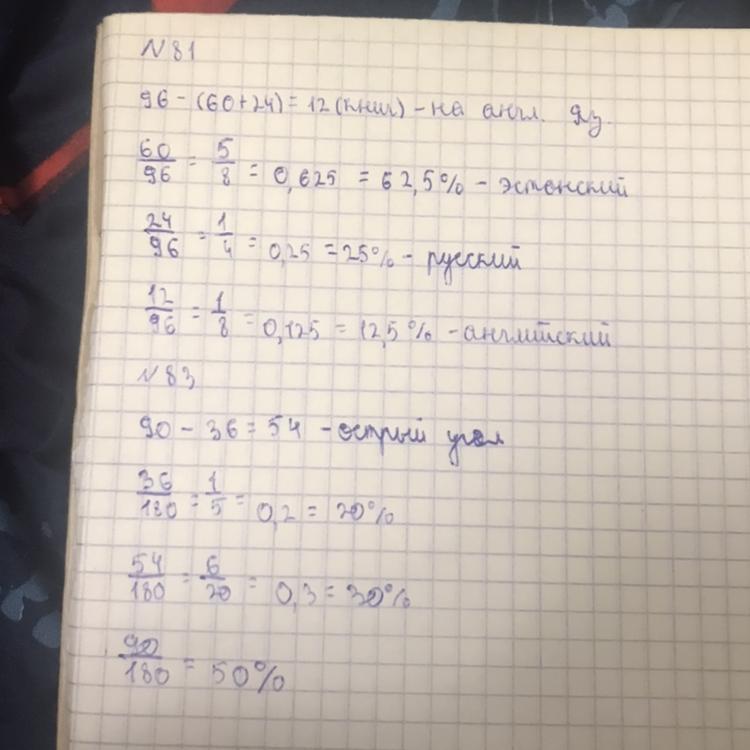 N 81
96 - (60+24) = 12 (книг) - на англ. яз.
60/96 = 5/8 = 0,625 = 62,5% - эстонский
24/96 = 1/4 = 0,25 = 25% - русский
12/96 = 1/8 = 0,125 = 12,5% - английский
N 83
90 - 36 = 54 - острый угол
36/180 = 1/5 = 0,2 = 20%
54/180 = 6/20 = 0,3 = 30%
90/180 = 50%